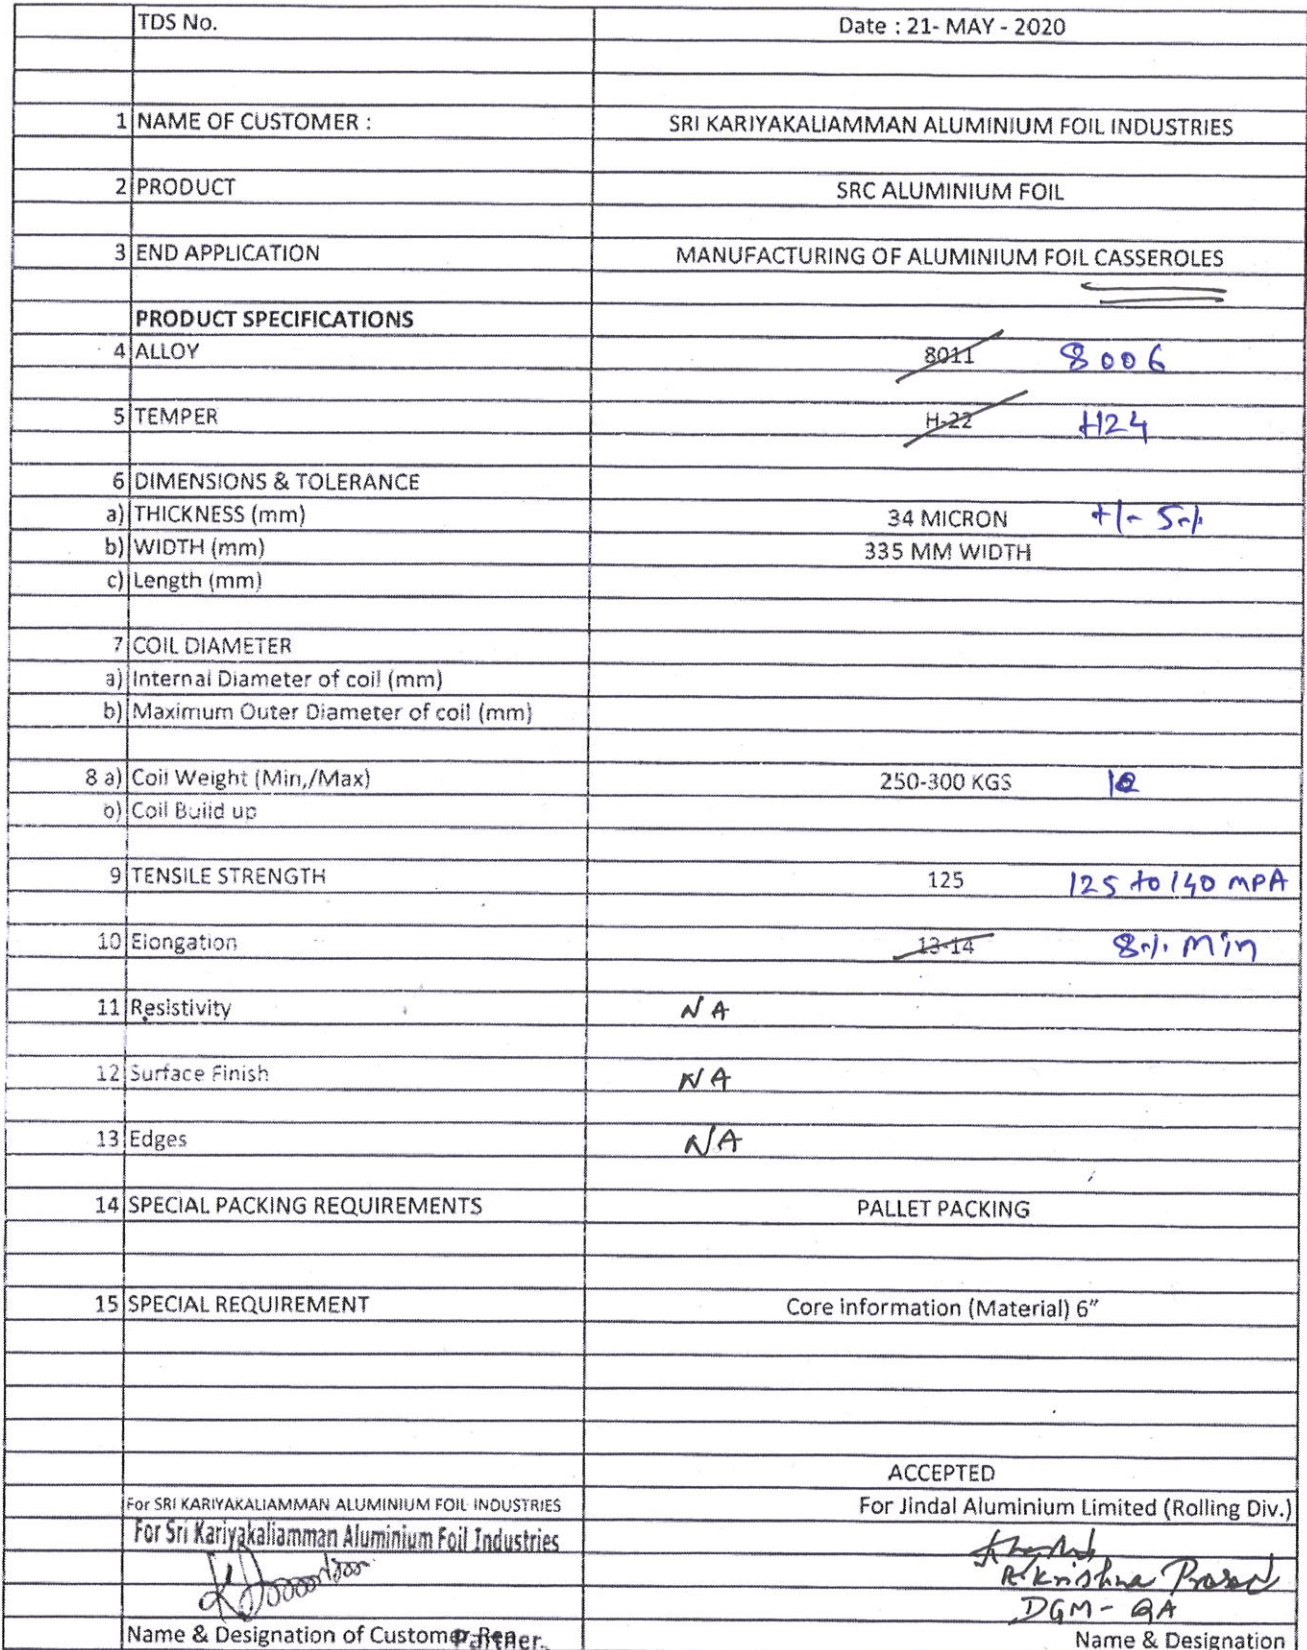 TDS No. Date : 21- MAY - 2020
1 NAME OF CUSTOMER : SRI KARIYAKALIAMMAN ALUMINIUM FOIL INDUSTRIES
2 PRODUCT SRC ALUMINIUM FOIL
3 END APPLICATION MANUFACTURING OF ALUMINIUM FOIL CASSEROLES
PRODUCT SPECIFICATIONS
4 ALLOY 8011 8006
5 TEMPER H-22 H24
6 DIMENSIONS & TOLERANCE
a) THICKNESS (mm) 34 MICRON +/- 5%
b) WIDTH (mm) 335 MM WIDTH
c) Length (mm)
7 COIL DIAMETER
a) Internal Diameter of coil (mm)
b) Maximum Outer Diameter of coil (mm)
8 a) Coil Weight (Min,/Max) 250-300 KGS
b) Coil Build up
9 TENSILE STRENGTH 125 125 to 140 MPA
10 Elongation 13-14 8% Min
11 Resistivity NA
12 Surface Finish NA
13 Edges NA
14 SPECIAL PACKING REQUIREMENTS PALLET PACKING
15 SPECIAL REQUIREMENT Core information (Material) 6"
ACCEPTED
For SRI KARIYAKALIAMMAN ALUMINIUM FOIL INDUSTRIES For Jindal Aluminium Limited (Rolling Div.)
For Sri Kariyakaliamman Aluminium Foil Industries
R. Krishna Prasad
DGM - QA
Name & Designation of Customer Rep Partner. Name & Designation